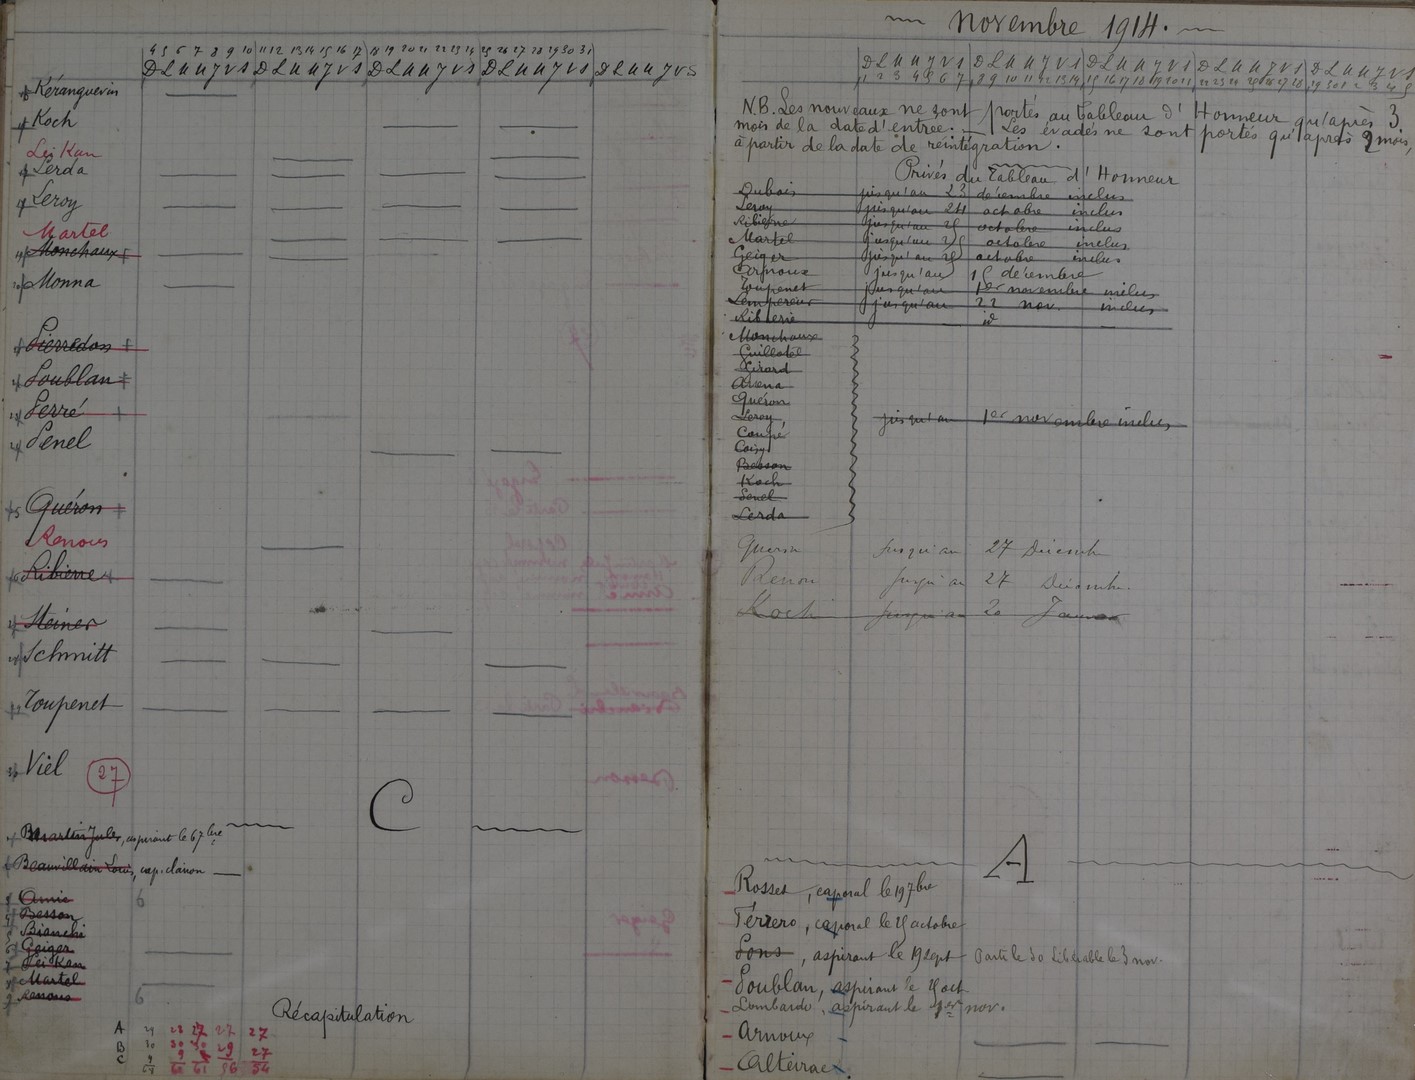 4 5 6 7 8 9 10 11 12 13 14 15 16 17 18 19 20 21 22 23 24 25 26 27 28 29 30 31
D L M M J V S D L M M J V S D L M M J V S D L M M J V S D L M M J V S
Kéranguevin
Koch
Lei Kan
Lerda
Leroy
Martel
Monchaux
Monna
Pierredon
Poublan
Perré
Penel
Quéron
Renous
Ribierre
Steiner
Schmitt
Toupenet
Viel
27
C
Martin Jules, aspirant le 6 7bre
Beauvillain Louis, cap. clairon
Amie 6
Besson
Bianchi
Geiger
Lei Kan
Martel
Renous 6
Récapitulation
A 21 28 27 27 27
B 30 30 30 29 27
C 9 9
61 61 56 54
Novembre 1914.
D L M M J V S D L M M J V S D L M M J V S D L M M J V S D L M M J V S
1 2 3 4 5 6 7 8 9 10 11 12 13 14 15 16 17 18 19 20 21 22 23 24 25 26 27 28 29 30 1 2 3 4 5
N.B. Les nouveaux ne sont portés au tableau d'Honneur qu'après 3
mois de la date d'entrée. — Les évadés ne sont portés qu'après 2 mois,
à partir de la date de réintégration.
Privés du Tableau d'Honneur
Dubois jusqu'au 23 décembre inclus
Leroy jusqu'au 24 octobre inclus
Ribierre jusqu'au 25 octobre inclus
Martel jusqu'au 25 octobre inclus
Geiger jusqu'au 25 octobre inclus
jusqu'au décembre
Toupenet jusqu'au 1er novembre inclus
Lempereur jusqu'au 22 nov. inclus
id
Monchaux
Guillotel
Girard
Avena
Quéron
Leroy jusqu'au 1er novembre inclus
Coupé
Besson
Koch
Penel
Lerda
Queron jusqu'au 27 Décemb
Renou jusqu'au 27 Décemb.
Koch jusqu'au 20
A
Rosset, caporal le 19 7bre
Ferrero, caporal le 25 octobre
Pons, aspirant le 19 sept Parti le 30 Libérable le 3 nov.
Poublan, aspirant le oct
Lombardo, aspirant le 1er nov.
Arnoux
Alteirac